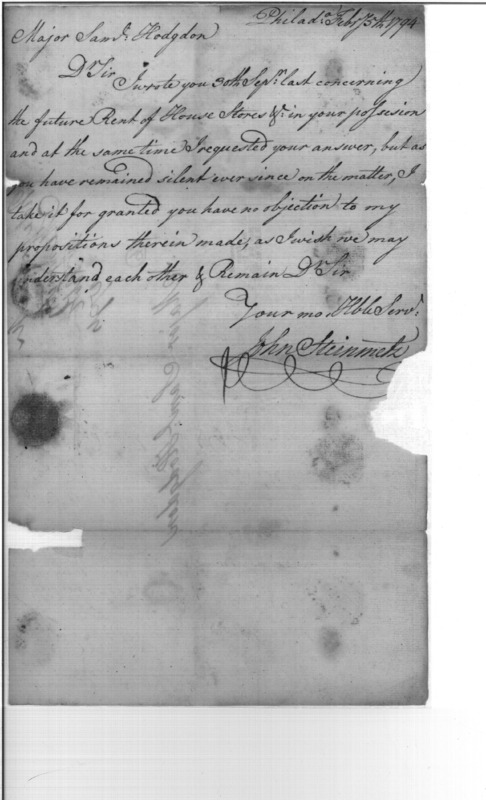 Philad.a Feby 5th 1794
Major Sam.l Hodgdon
Dr Sir
I wrote you 30th Sepr. last concerning
the future Rent of House Stores &c in your possession
and at the same time I requested your answer, but as
you have remained silent ever since on the matter, I
take it for granted you have no objection to my
propositions therein made; as I wish we may
understand each other & Remain Dr Sir
Your mo. Hble Servt.
John Steinmetz